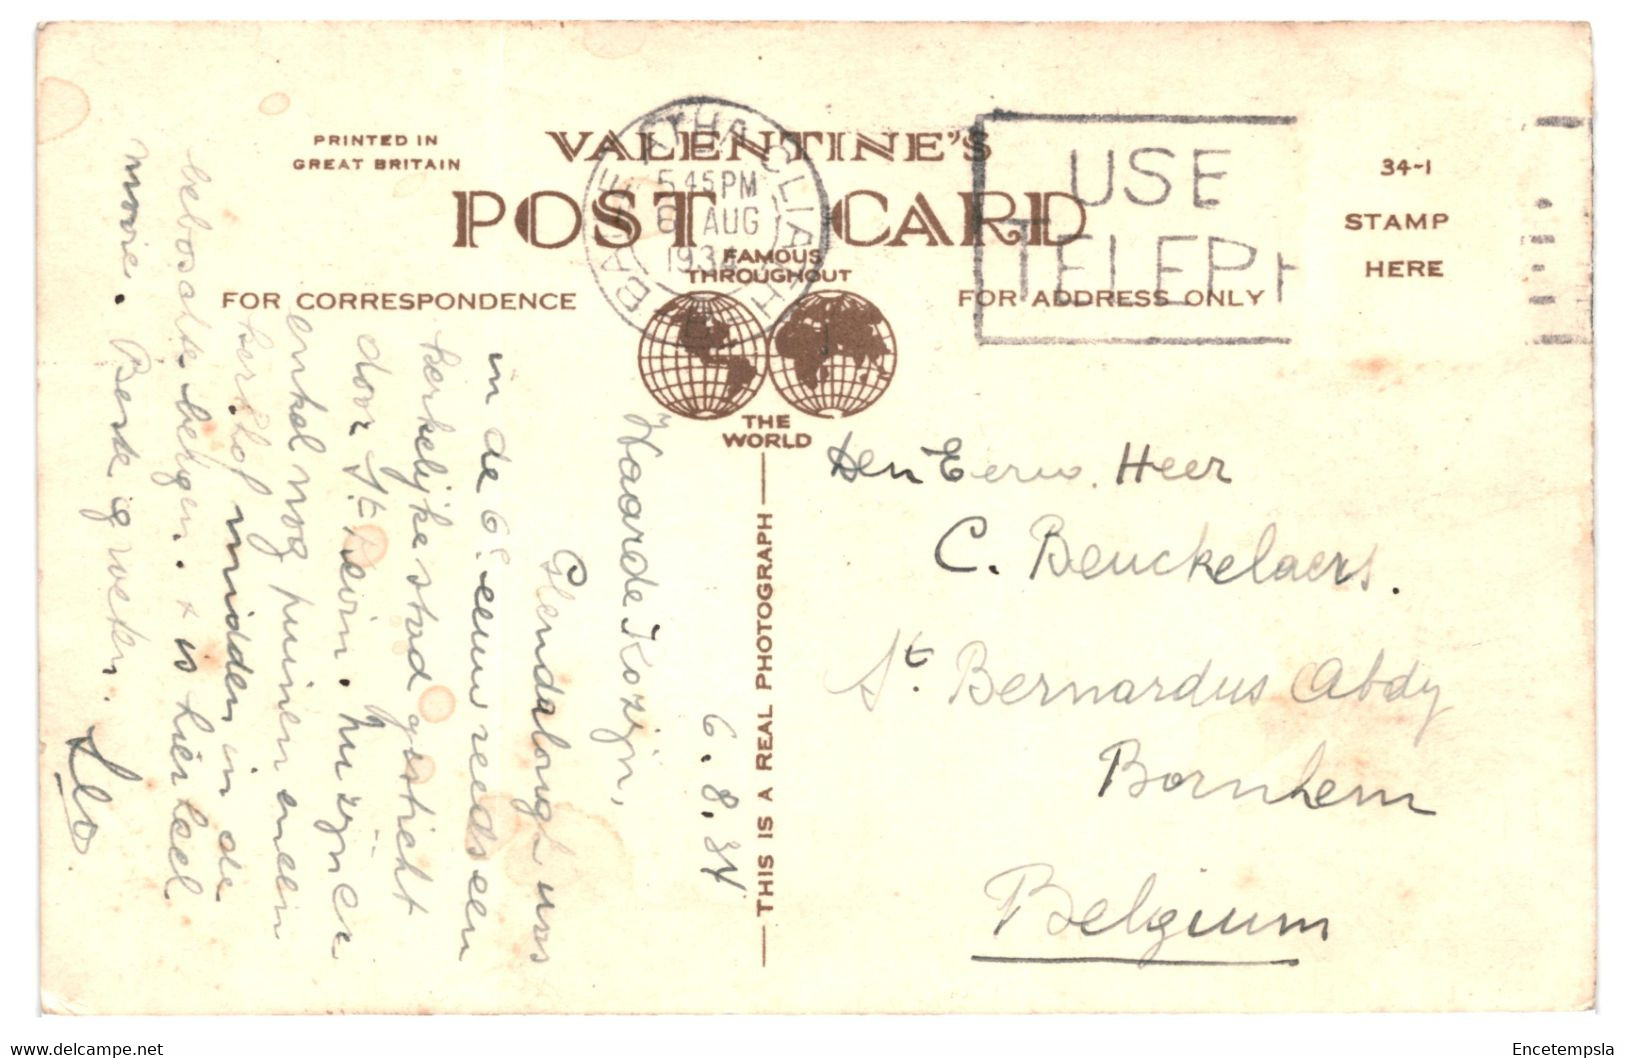 PRINTED IN
GREAT BRITAIN
VALENTINE'S
POST CARD
FAMOUS
THROUGHOUT
THE
WORLD
FOR CORRESPONDENCE
FOR ADDRESS ONLY
34-1
STAMP
HERE
BAILE ÁTHA CLIATH
5 45 PM
6 AUG
1934
USE
TELEPH
THIS IS A REAL PHOTOGRAPH
6.8.34
Waarde Kozijn,
Glendalough was
in de 6e eeuw reeds een
kerkelijke stad gesticht
door St Kevin. Nu zijn er
enkel nog puinen en een
kerkhof midden in de
beboschte bergen. & is hier heel
mooi. Beste groeten.
Den Eerw. Heer
C. Beuckelaers.
St. Bernardus Abdy
Bornhem
Belgium
Encetempsla
www.delcampe.net